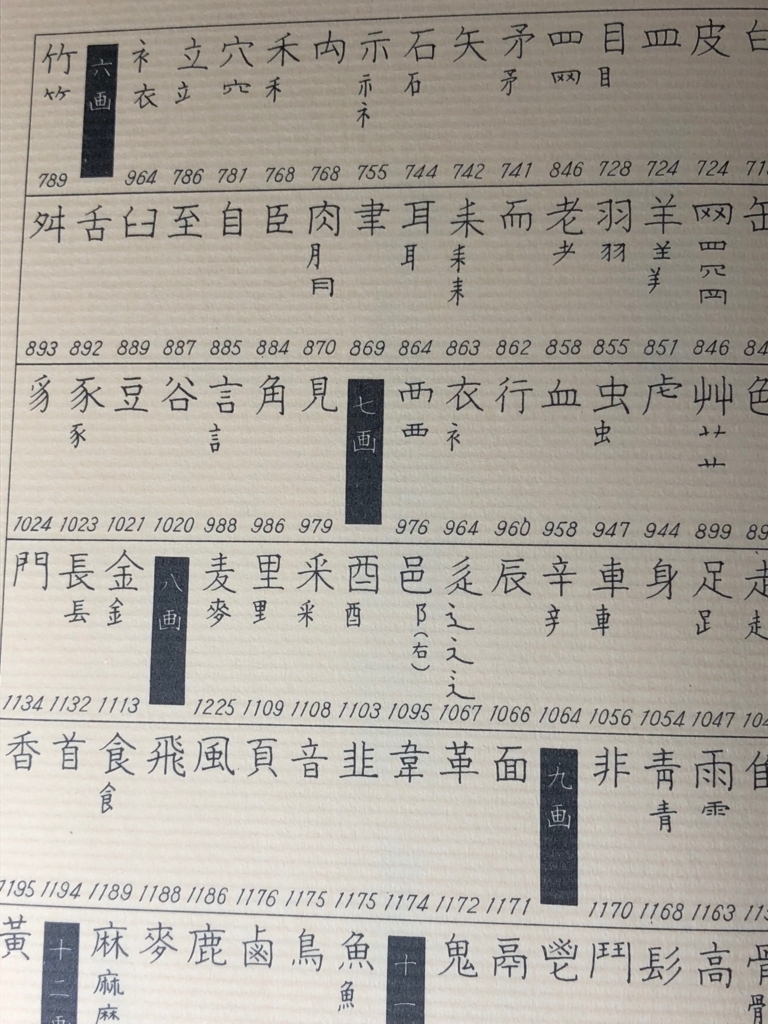 白
皮 724
皿 724
目 目 728
四 网 846
矛 矛 741
矢 742
石 石 744
示 示 礻 755
禸 768
禾 禾 768
穴 穴 781
立 立 786
衤 衣 964
六画
竹 ⺮ 789
缶
网 罒 㓁 罓 846
羊 ⺷ ⺶ 851
羽 羽 855
老 耂 858
而 862
耒 耒 耒 863
耳 耳 864
聿 869
肉 月 ⺼ 870
臣 884
自 885
至 887
臼 889
舌 892
舛 893
色
艸 艹 艹 899
虍 944
虫 虫 947
血 958
行 960
衣 衤 964
襾 覀 976
七画
見 979
角 986
言 訁 988
谷 1020
豆 1021
豕 豕 1023
豸 1024
走 走
足 ⻊ 1047
身 1054
車 車 1056
辛 辛 1064
辰 1066
辵 辶 辶 辶 1067
邑 阝(右) 1095
酉 酉 1103
釆 釆 1108
里 里 1109
麦 麥 1225
八画
金 釒 1113
長 镸 1132
門 1134
隹
雨 ⻗ 1163
靑 青 1168
非 1170
九画
面 1171
革 1172
韋 1174
韭 1175
音 1175
頁 1176
風 1186
飛 1188
食 飠 1189
首 1194
香 1195
骨 骨
高
髟
鬥
鬯
鬲
鬼
十一
魚 魚
鳥
鹵
鹿
麥
麻 麻 麻
十二画
黃